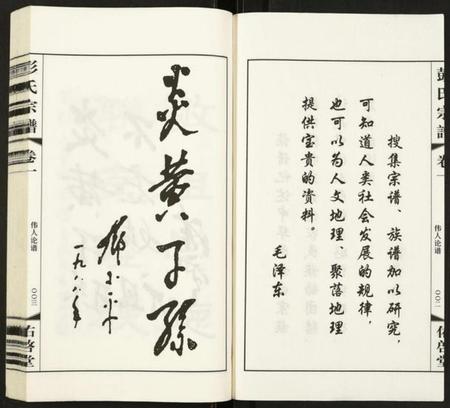 彭氏宗譜
卷一
伟人论谱
〇〇二
佑啓堂
搜集宗谱、族谱加以研究，
可知道人类社会发展的规律，
也可以为人文地理、聚落地理
提供宝贵的资料。
毛泽东
炎黄子孙
邓小平
一九八八年
彭氏宗譜
卷一
伟人论谱
〇〇三
佑啓堂